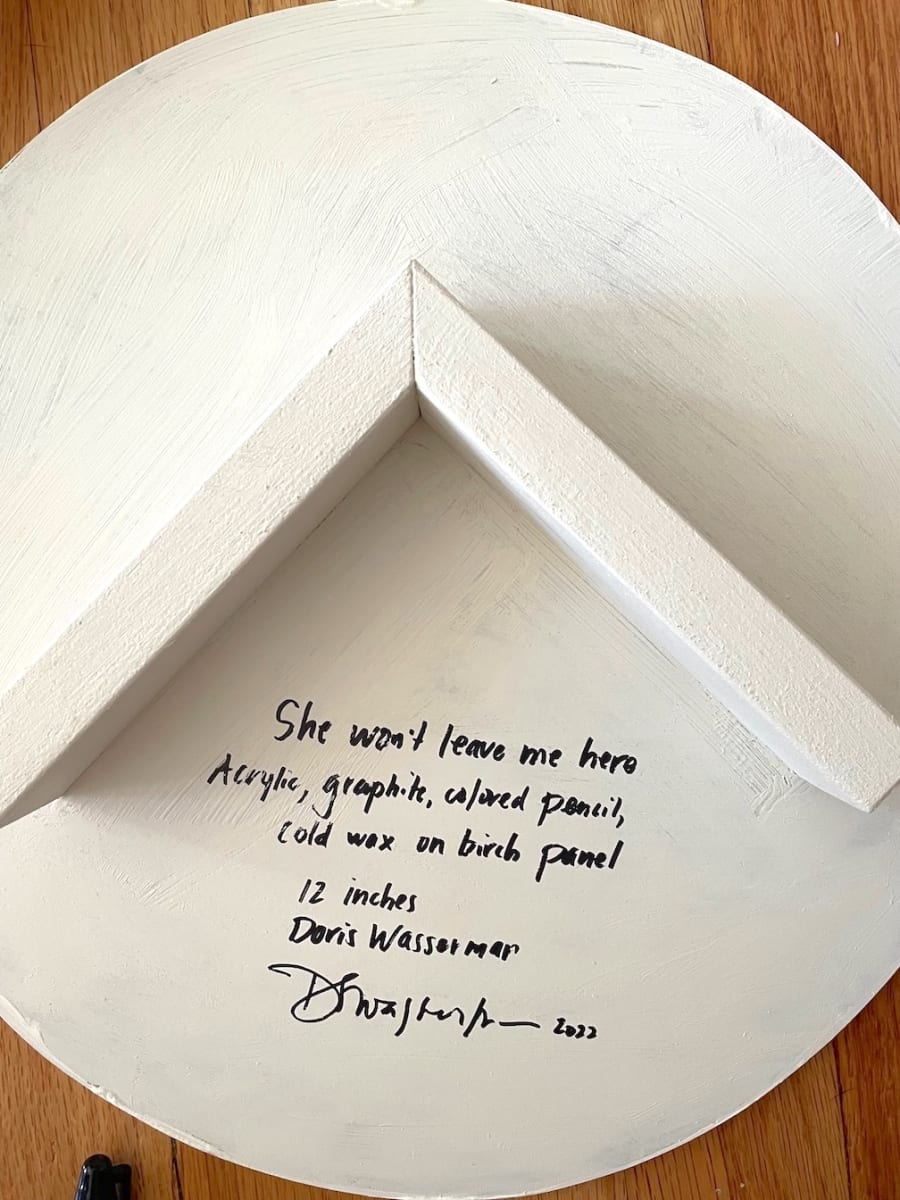 She won't leave me here
Acrylic, graphite, colored pencil,
cold wax on birch panel
12 inches
Doris Wasserman
2022